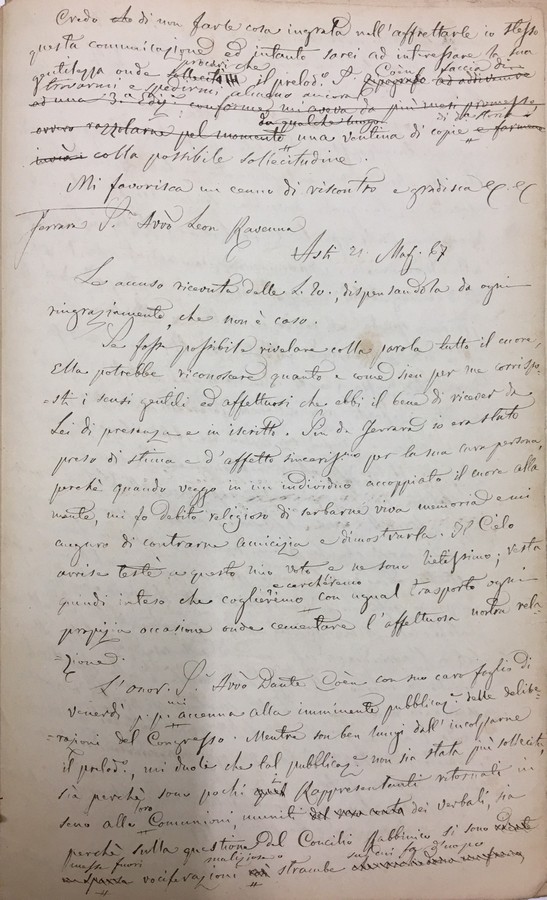 Credo di non farle cosa ingrata nell'affrettarle io stesso
questa comunicazione ed intanto sarei ad interessare la sua
procuri che Coèn faccia di
gentilezza onde il prelod. S.
trovarmi e spedirmi alcuno ancora
ad una conforme mi aveva da più mesi promesso,
da qualche luogo di da Storia
ovvero pel momento una ventina di copie e
colla possibile sollecitudine.
Mi favorisca un cenno di riscontro e gradisca &c. &c
Ferrara S. Avvo Leon Ravenna
Asti 21. Mag. 67
Le accuso ricevuta delle L. 20., dispensandola da ogni
ringraziamento, che non è caso.
Se fosse possibile rivelare colla parola tutto il cuore,
Ella potrebbe riconoscere quanto e come sien per me corrispo-
=sti i sensi gentili ed affettuosi che ebbi il bene di ricever da
Lei di presenza e in iscritto. Sin da Ferrara io era stato
preso di stima e d'affetto per la sua cara persona,
perchè quando veggo in un individuo accoppiato il cuore alla
mente, mi fo debito religioso di serbarne viva memoria e mi
auguro di contrarne amicizia e dimostrarla. Il Cielo
arrise testè a questo mio voto e ne sono lietissimo; resta
e cercheremo
quindi inteso che coglieremo con ugual trasporto ogni
propizia occasione onde cementare l'affettuosa nostra rela-
=zione.
L'onor. S. Avvo Dante Coèn con suo caro foglio di
venerdì p. p. mi accenna alla imminente pubblicaz. delle delibe-
=razioni del Congresso. Mentre son ben lungi dall'incolparne
il prelod., mi duole che tal pubblicaz. non sia stata più sollecita,
sia perchè sono pochi Rappresentanti ritornati in
loro
seno alle Comunioni muniti dei verbali, sia
perchè sulla questione del Concilio Rabbinico si sono
messe fuori maligiose o
vociferazioni strambe